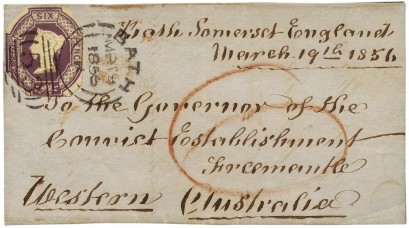 SIX PENCE
BATH
MR 19
1856
Bath Somerset England
March 19th 1856
To the Governor of the
Convict Establishment
Freemantle
Western Australia